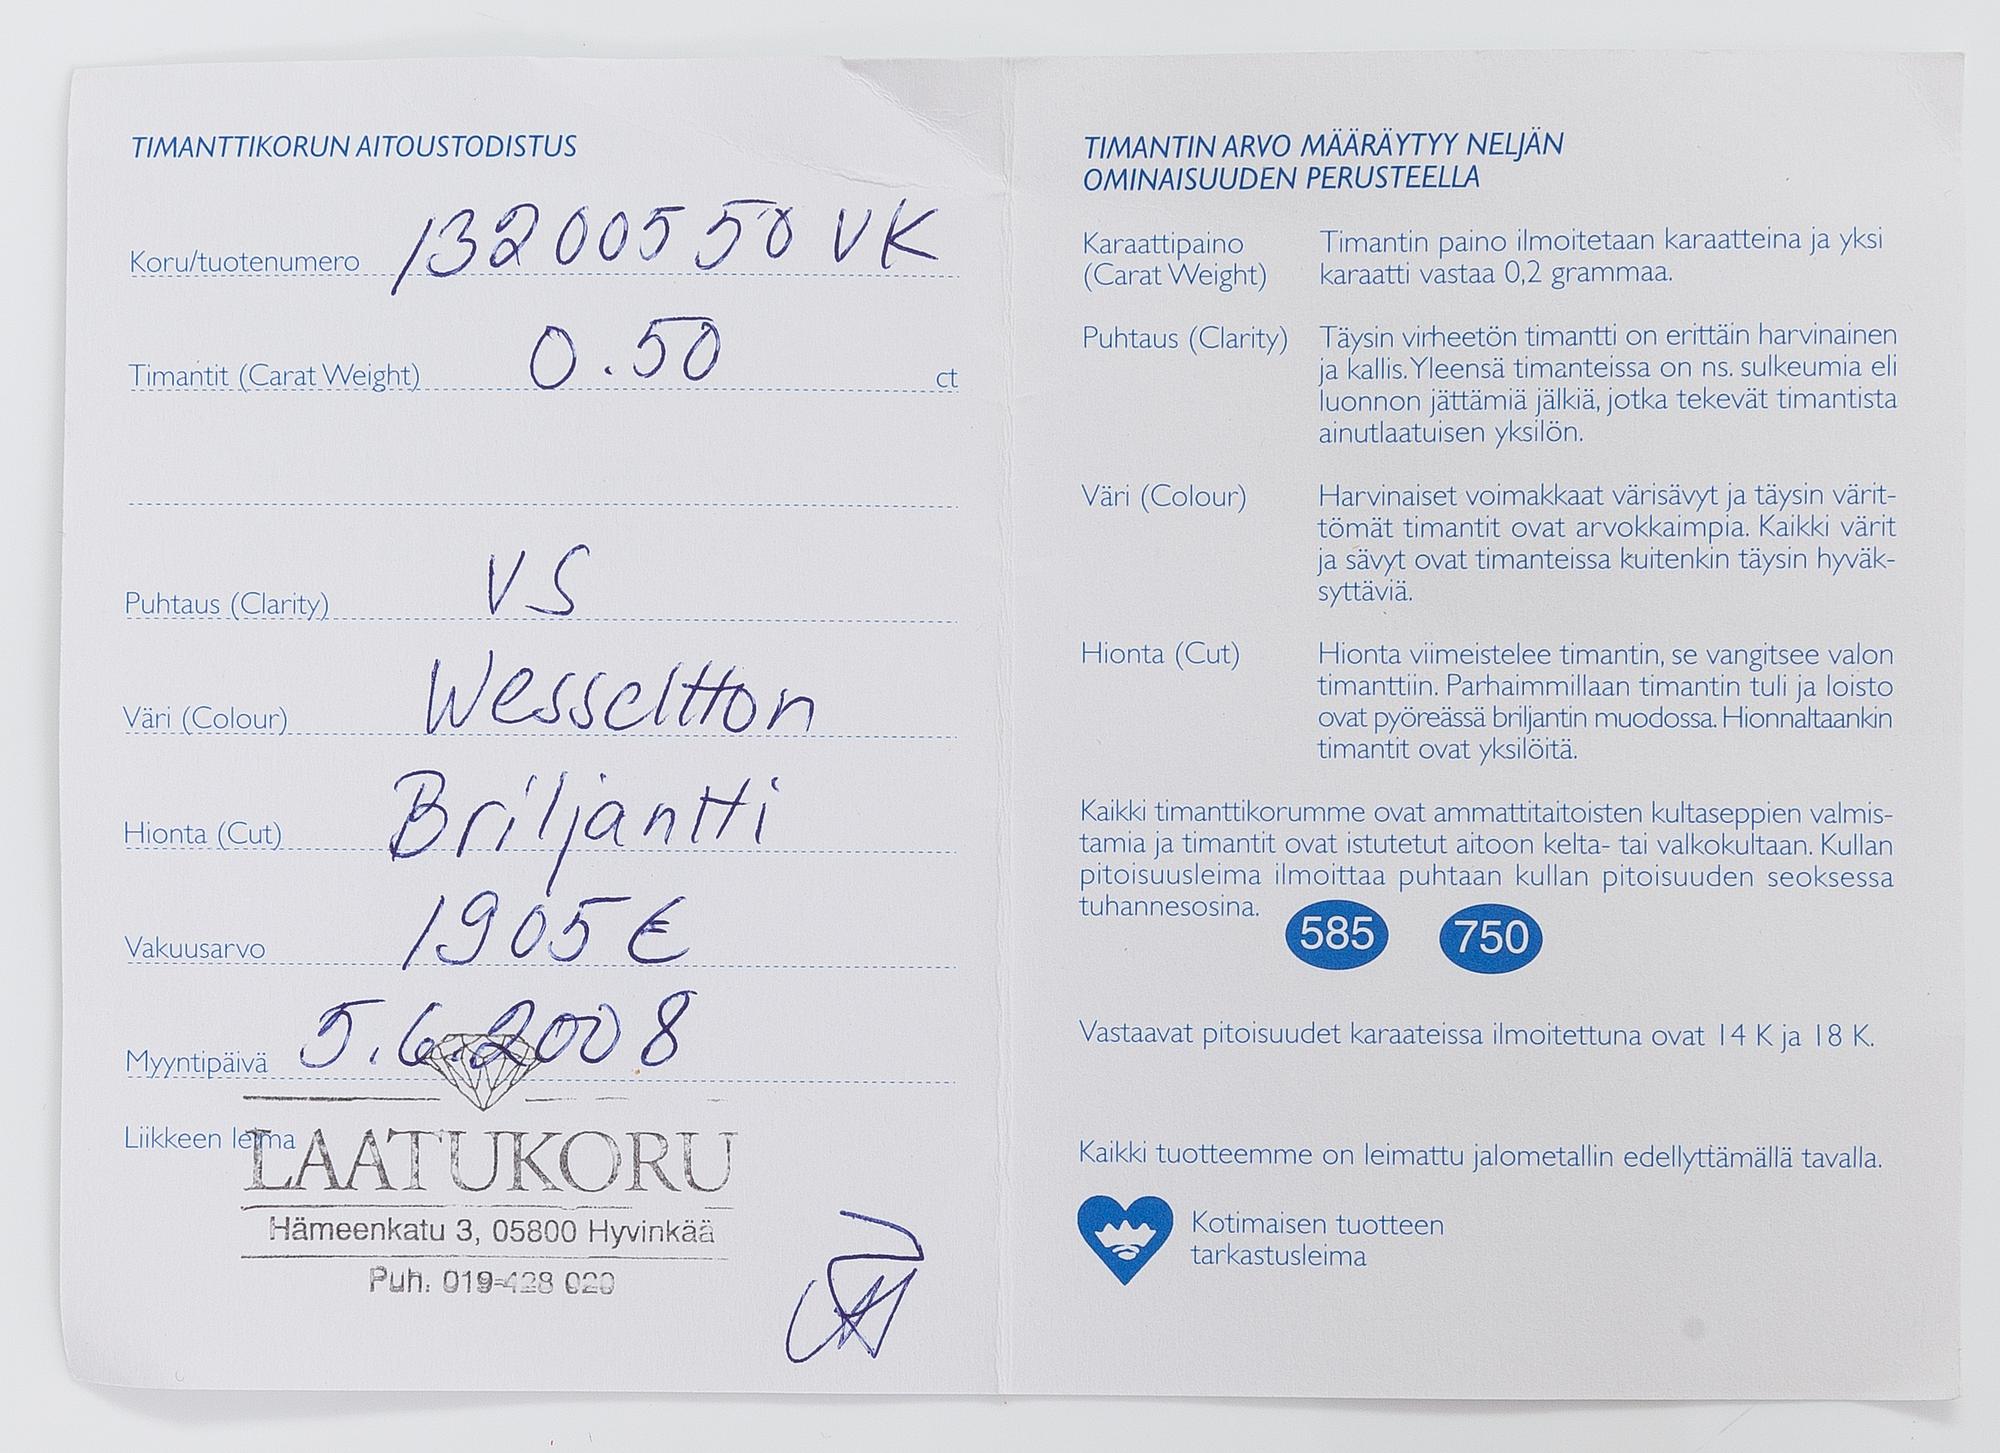 TIMANTTIKORUN AITOUSTODISTUS
Koru/tuotenumero 13200550 VK
Timantit (Carat Weight) 0.50 ct
Puhtaus (Clarity) VS
Väri (Colour) Wesseltton
Hionta (Cut) Briljantti
Vakuusarvo 1905 €
Myyntipäivä 5.6.2008
Liikkeen leima
LAATUKORU
Hämeenkatu 3, 05800 Hyvinkää
Puh. 019-428 020
TIMANTIN ARVO MÄÄRÄYTYY NELJÄN
OMINAISUUDEN PERUSTEELLA
Karaattipaino Timantin paino ilmoitetaan karaatteina ja yksi
(Carat Weight) karaatti vastaa 0,2 grammaa.
Puhtaus (Clarity) Täysin virheetön timantti on erittäin harvinainen
ja kallis. Yleensä timanteissa on ns. sulkeumia eli
luonnon jättämiä jälkiä, jotka tekevät timantista
ainutlaatuisen yksilön.
Väri (Colour) Harvinaiset voimakkaat värisävyt ja täysin värit-
tömät timantit ovat arvokkaimpia. Kaikki värit
ja sävyt ovat timanteissa kuitenkin täysin hyväk-
syttäviä.
Hionta (Cut) Hionta viimeistelee timantin, se vangitsee valon
timanttiin. Parhaimmillaan timantin tuli ja loisto
ovat pyöreässä briljantin muodossa. Hionnaltaankin
timantit ovat yksilöitä.
Kaikki timanttikorumme ovat ammattitaitoisten kultaseppien valmis-
tamia ja timantit ovat istutetut aitoon kelta- tai valkokultaan. Kullan
pitoisuusleima ilmoittaa puhtaan kullan pitoisuuden seoksessa
tuhannesosina. 585 750
Vastaavat pitoisuudet karaateissa ilmoitettuna ovat 14 K ja 18 K.
Kaikki tuotteemme on leimattu jalometallin edellyttämällä tavalla.
Kotimaisen tuotteen
tarkastusleima